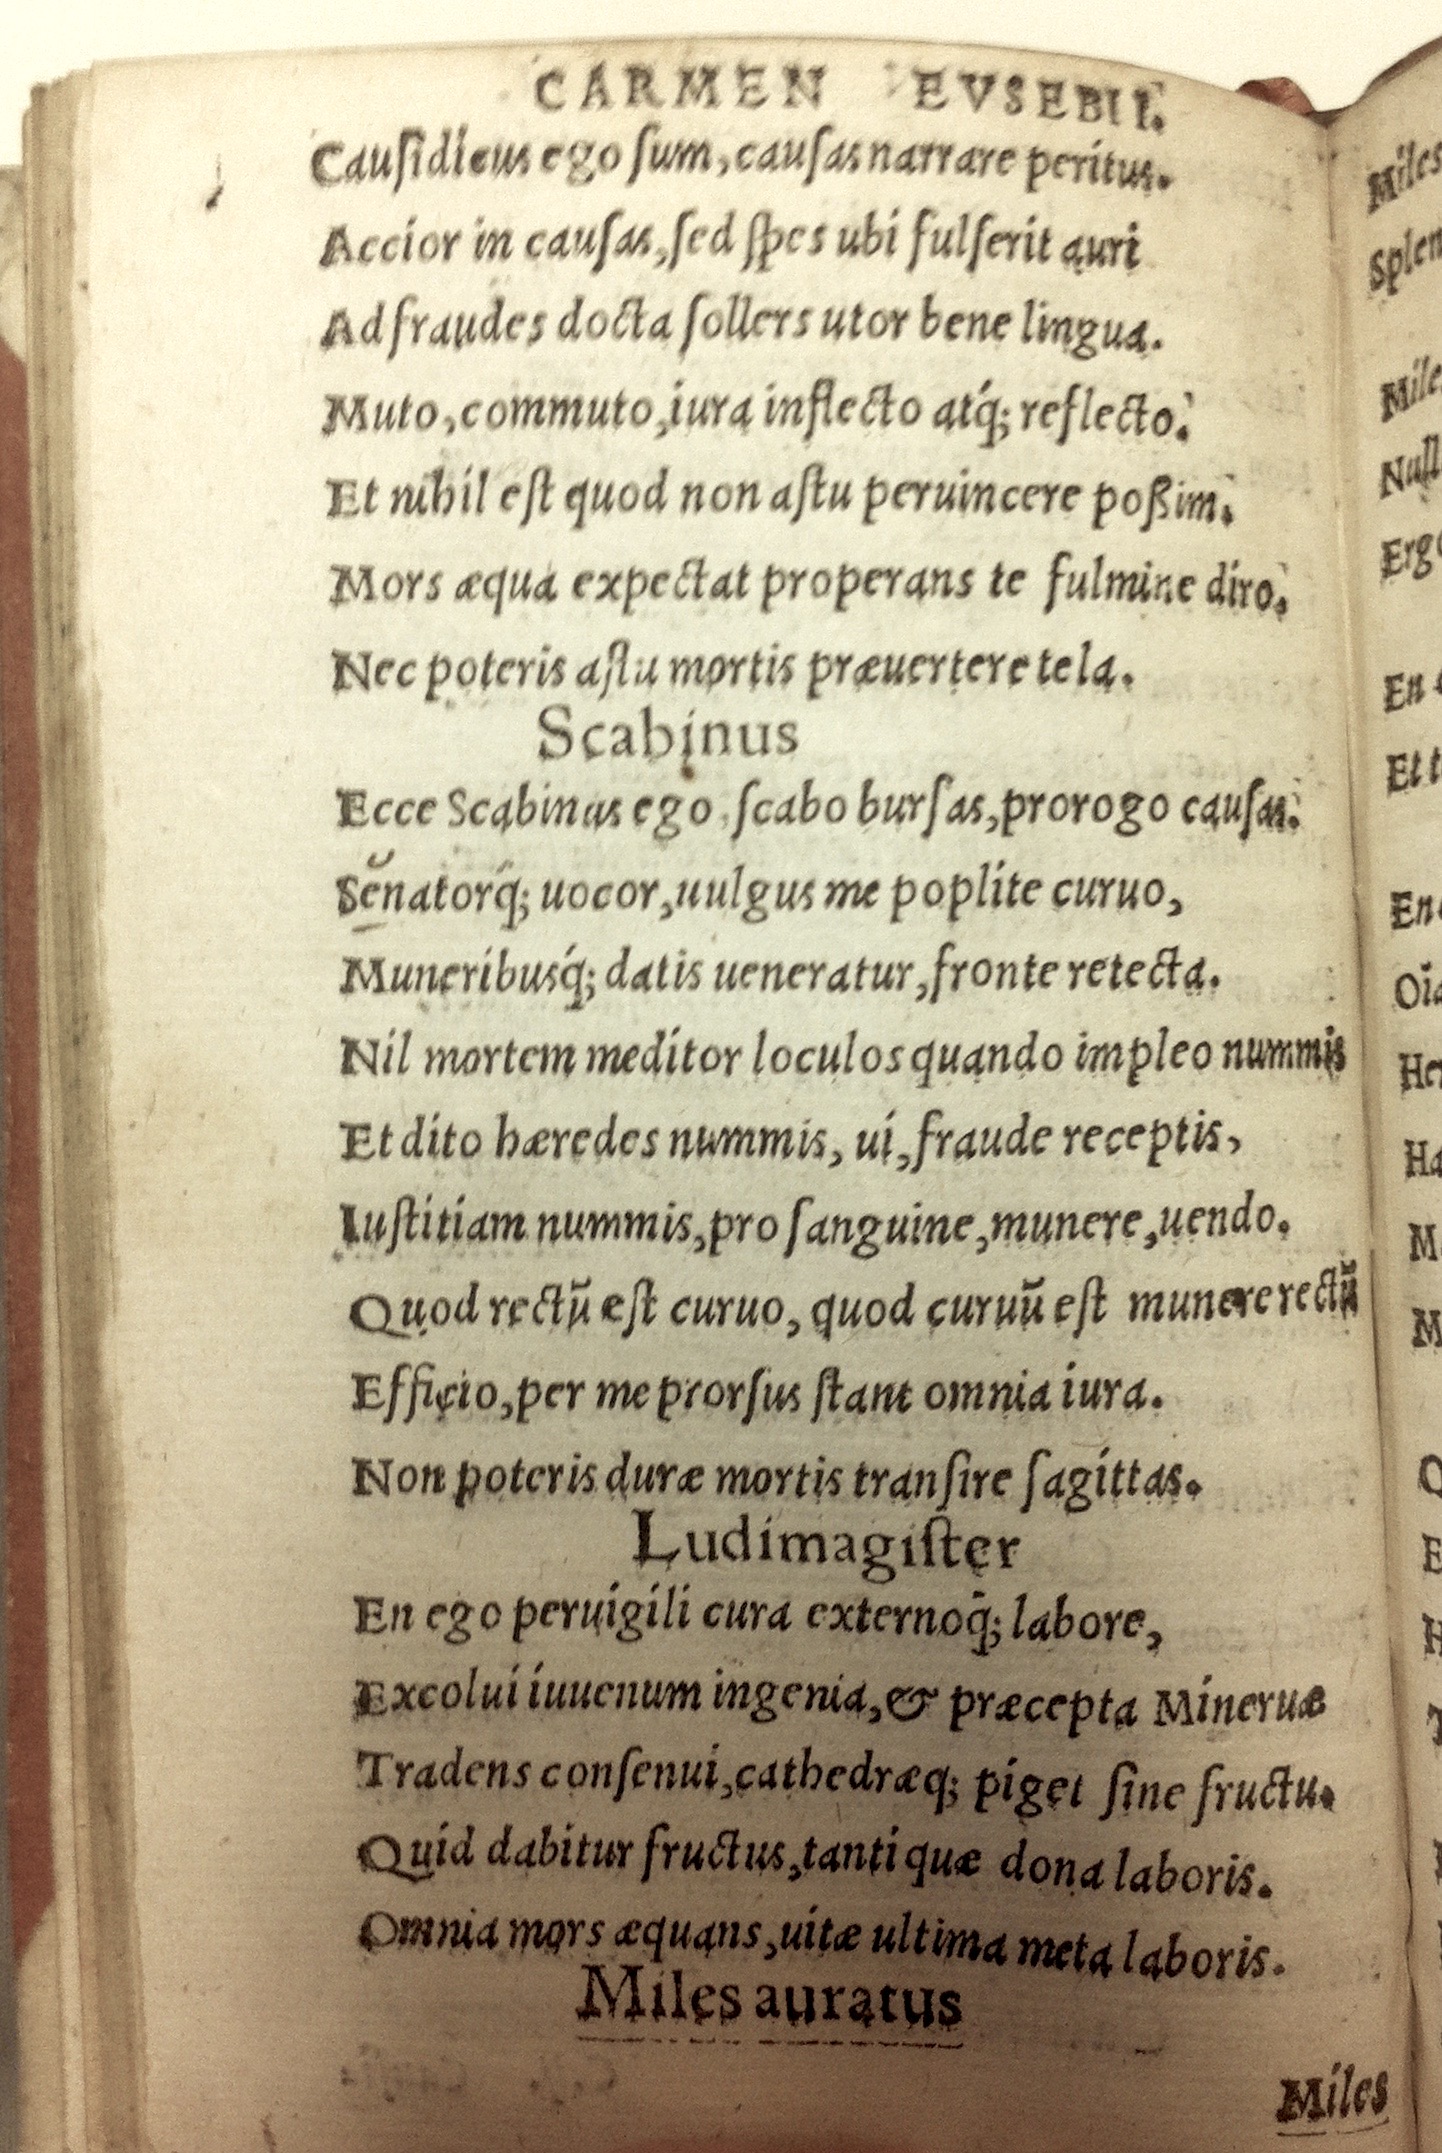 CARMEN EVSEBII.
Cauſidicus ego ſum, cauſas narrare peritus.
Accior in cauſas, ſed ſpes ubi fulſerit auri
Ad fraudes docta ſollers utor bene lingua.
Muto, commuto, iura inflecto atq́; reflecto.
Et nihil eſt quod non aſtu peruincere poßim.
Mors æqua expectat properans te fulmine diro.
Nec poteris aſtu mortis præuertere tela.
Scabinus
Ecce Scabinus ego ſcabo burſas, prorogo cauſas.
Senatorq́; uocor, uulgus me poplite curuo,
Muneribusq́; datis ueneratur, fronte retecta.
Nil mortem meditor loculos quando impleo nummis
Et dito hæredes nummis, ui, fraude receptis,
Iuſtitiam nummis, pro ſanguine, munere, uendo.
Quod rectū eſt curuo, quod curuū eſt munere rectū
Efficio, per me prorſus ſtant omnia iura.
Non poteris duræ mortis tranſire ſagittas.
Ludimagiſter
En ego peruigili cura externoq́; labore,
Excolui iuuenum ingenia, & præcepta Mineruæ
Tradens conſenui, cathedræq; piget ſine fructu.
Quid dabitur fructus, tanti quæ dona laboris.
Omnia mors æquans, uitæ ultima meta laboris.
Miles auratus
Miles
Miles
Ergo
En
Et t
En
M
M